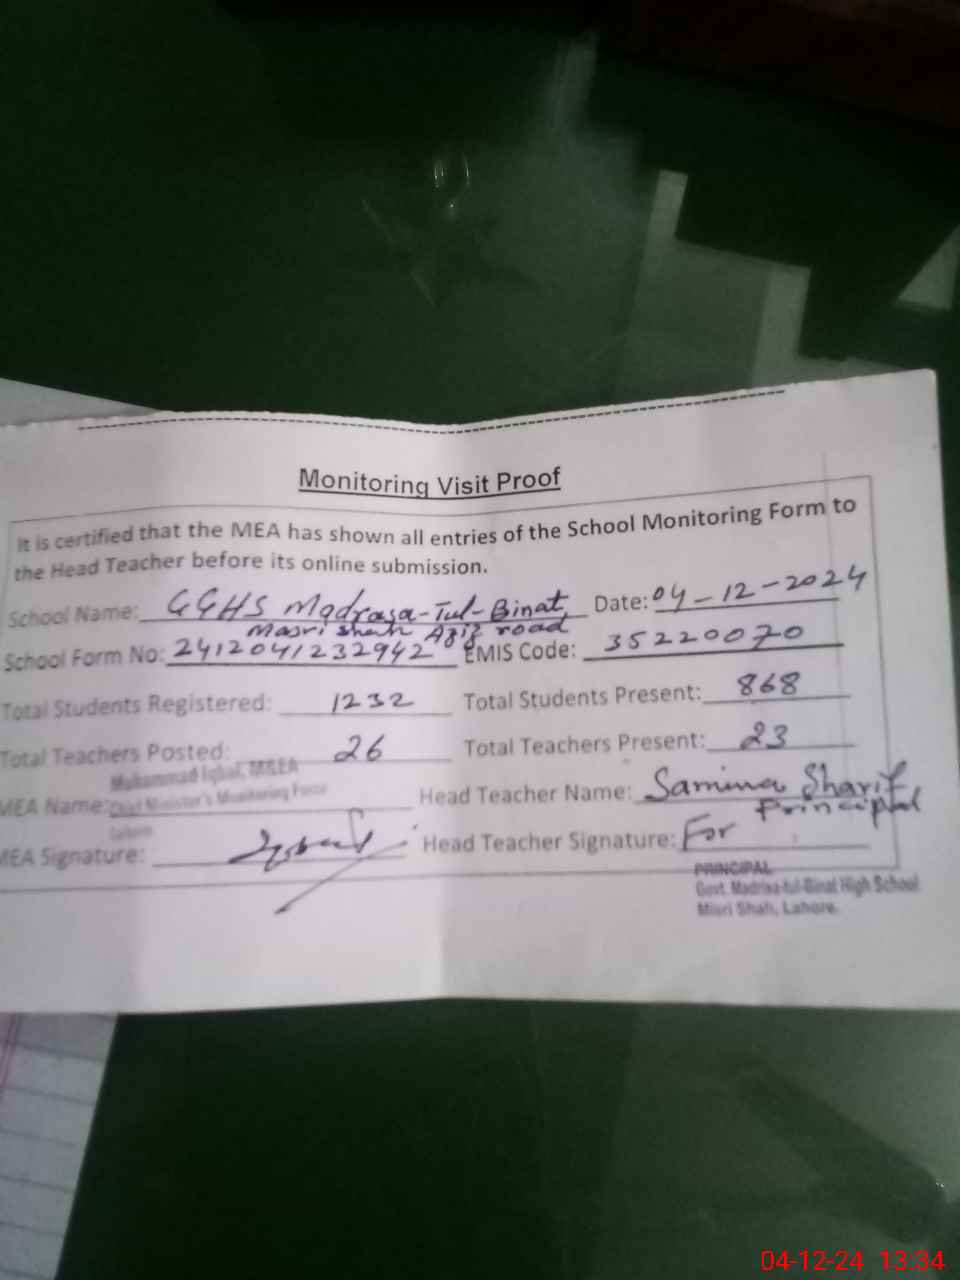 Monitoring Visit Proof
It is certified that the MEA has shown all entries of the School Monitoring Form to
the Head Teacher before its online submission.
School Name: GGHS Madrasa-Tul-Binat Date: 04-12-2024
Masri shah Aziz road
School Form No: 2412041232942 EMIS Code: 35220070
Total Students Registered: 1232 Total Students Present: 868
Total Teachers Posted: 26 Total Teachers Present: 23
Muhammad Iqbal, M&EA
MEA Name: Chief Minister's Monitoring Force Head Teacher Name: Samina Sharif
Lahore Principal
MEA Signature: Head Teacher Signature: For
PRINCIPAL
Govt. Madrisa-tul-Binat High School
Misri Shah, Lahore.
04-12-24 13:34